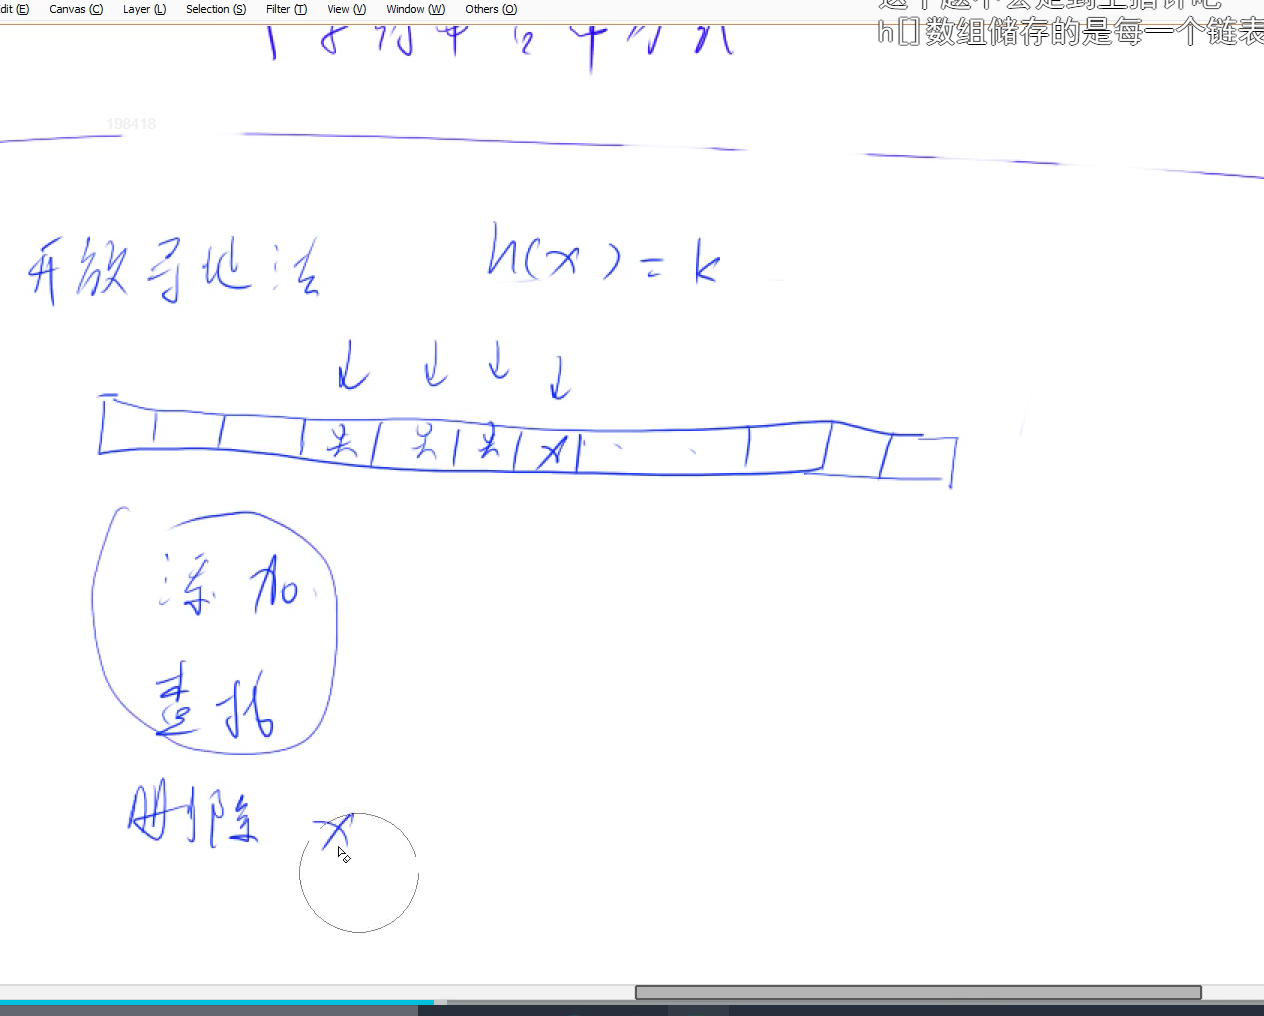 dit (E) Canvas (C) Layer (L) Selection (S) Filter (T) View (V) Window (W) Others (O)
h[]数组储存的是每一个链表
198418
开放寻址法 h(x) = k
关 关 关 x
添加
查找
删除 x